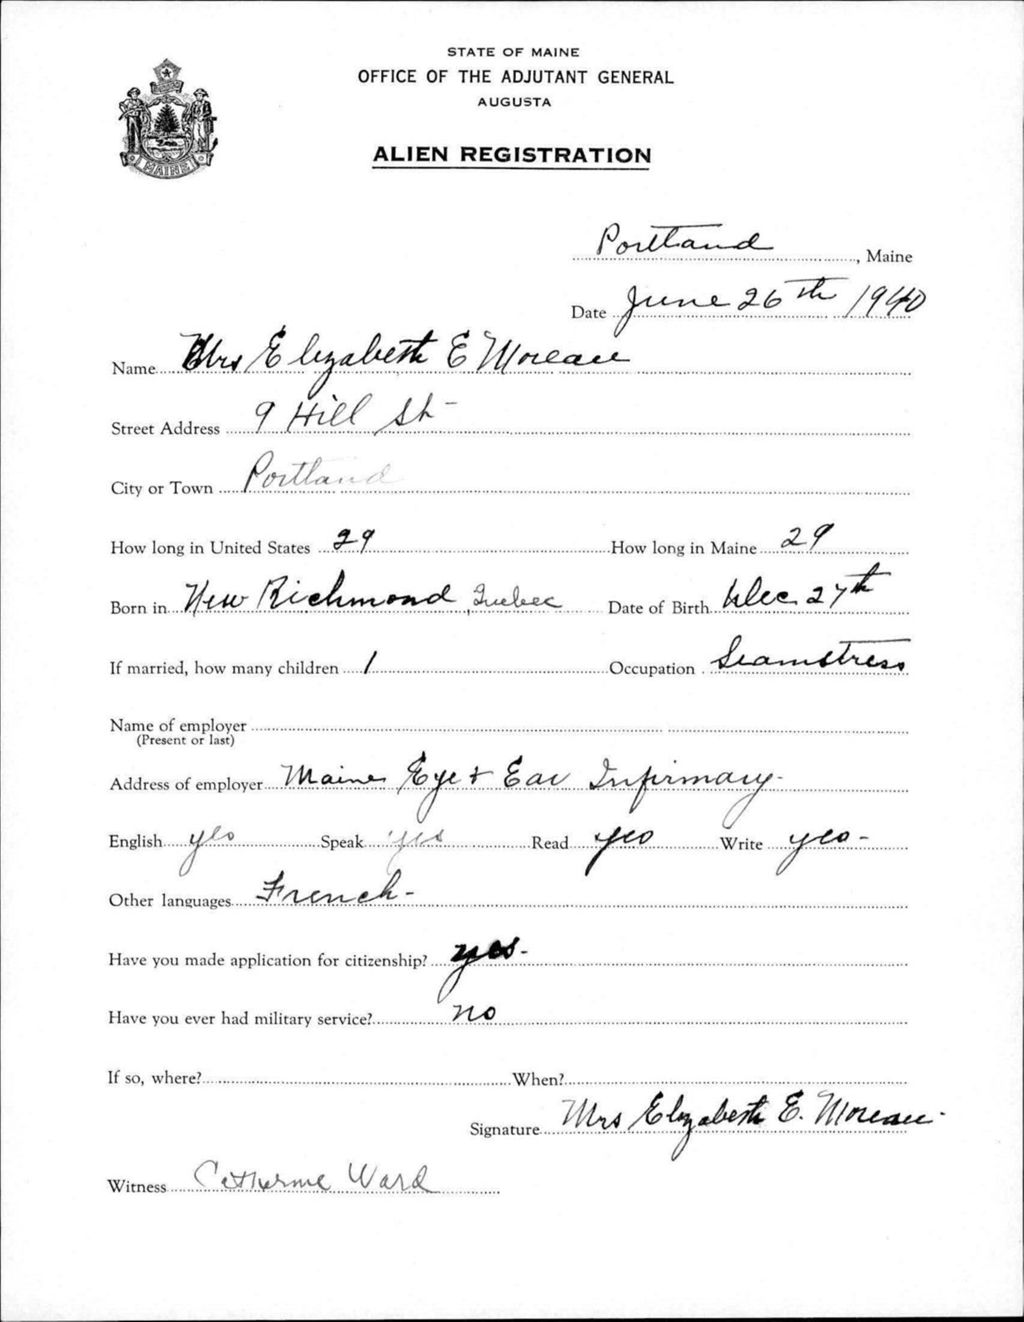 STATE OF MAINE
OFFICE OF THE ADJUTANT GENERAL
AUGUSTA
ALIEN REGISTRATION
MAINE
Portland, Maine
Date June 26th 1940
Name Mrs Elizabeth E Moreau
Street Address 9 Hill St-
City or Town Portland
How long in United States 29 How long in Maine 29
Born in New Richmond, Quebec Date of Birth Dec. 27th
If married, how many children 1 Occupation Seamstress
Name of employer
(Present or last)
Address of employer Maine Eye & Ear Infirmary-
English yes Speak yes Read yes Write yes-
Other languages French-
Have you made application for citizenship? yes-
Have you ever had military service? no
If so, where? When?
Signature Mrs Elizabeth E. Moreau-
Witness Catherine Ward